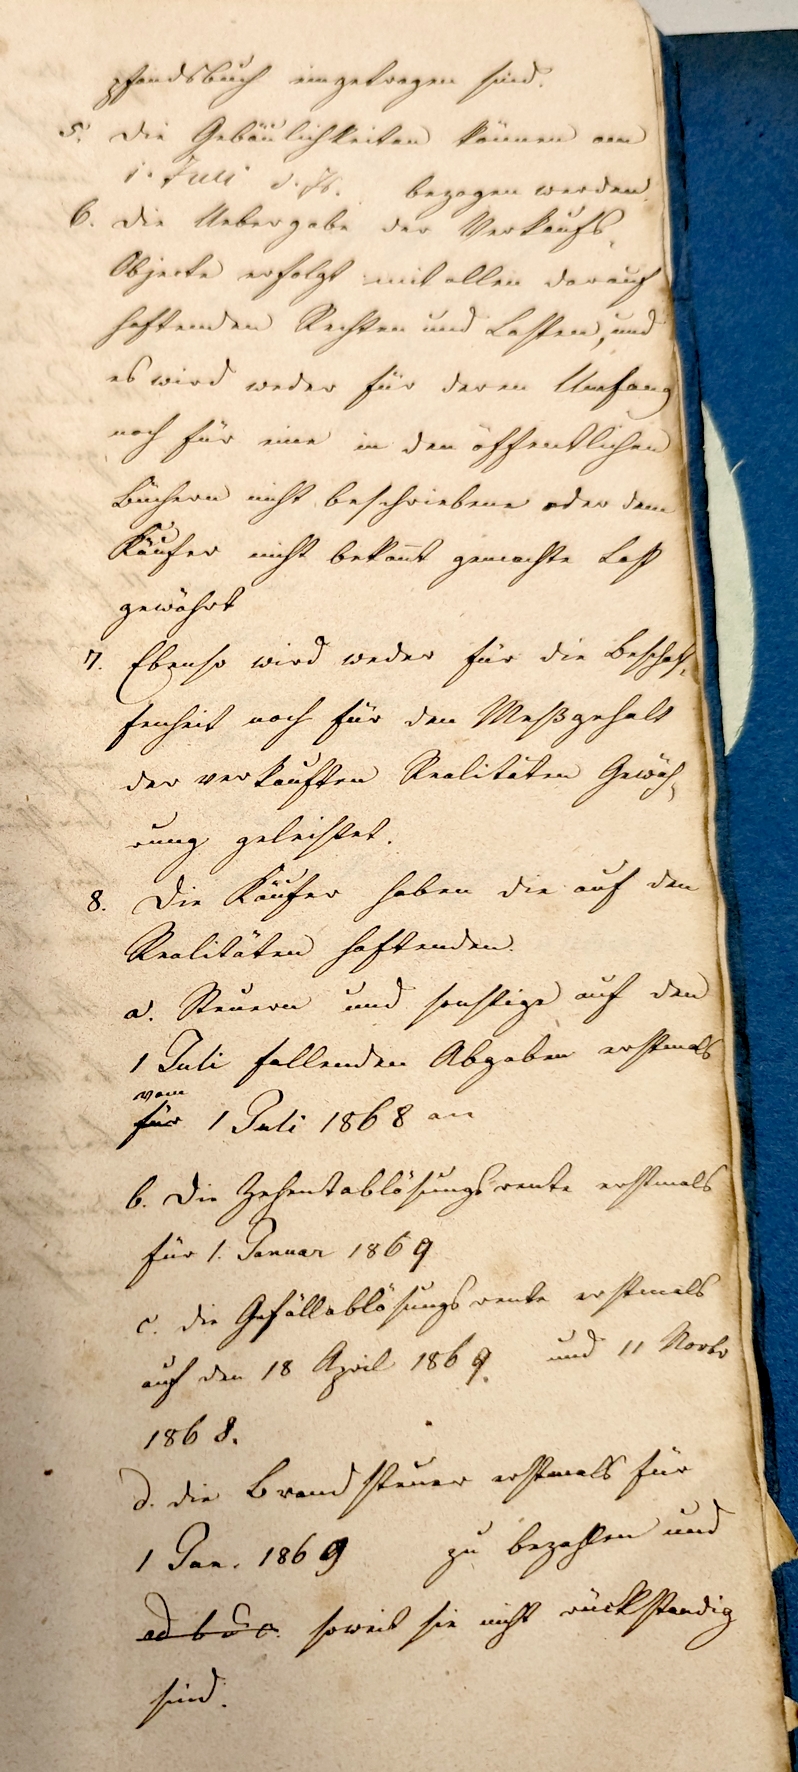 pfandsbuch eingetragen sind.
5. Die Gebäulichkeiten können am
1. Juli d. Js. bezogen werden.
6. Die Uebergabe der Verkaufs-
Objecte erfolgt mit allen darauf
haftenden Rechten und Lasten, und
es wird weder für deren Umfang
noch für eine in den öffentlichen
Büchern nicht beschriebene oder dem
Käufer nicht bekannt gemachte Last
gewährt
7. Ebenso wird weder für die Beschaf-
fenheit noch für den Meßgehalt
der verkauften Realitäten Gewäh-
rung geleistet.
8. Die Käufer haben die auf den
Realitäten haftenden.
a. Steuern und sonstige auf den
1 Juli fallenden Abgaben erstmals
vom
für 1 Juli 1868 an
b. Die Zehentablösungsrente erstmals
für 1. Januar 1869
c. die Gefällablösungsrente erstmals
auf den 18 April 1869. und 11 Novbr
1868.
d. die Brandsteuer erstmals für
1 Jan. 1869 zu bezahlen und
ad b & c. soweit sie nicht rückständig
sind.